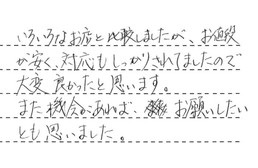 いろいろなお店と比較しましたが、お値段
が安く、対応もしっかりされてましたので
大変良かったと思います。
また機会があれば、お願いしたい
とも思いました。